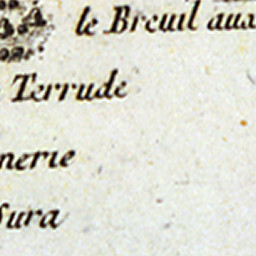 le Breuil aux
Terrude
nerie
Sura